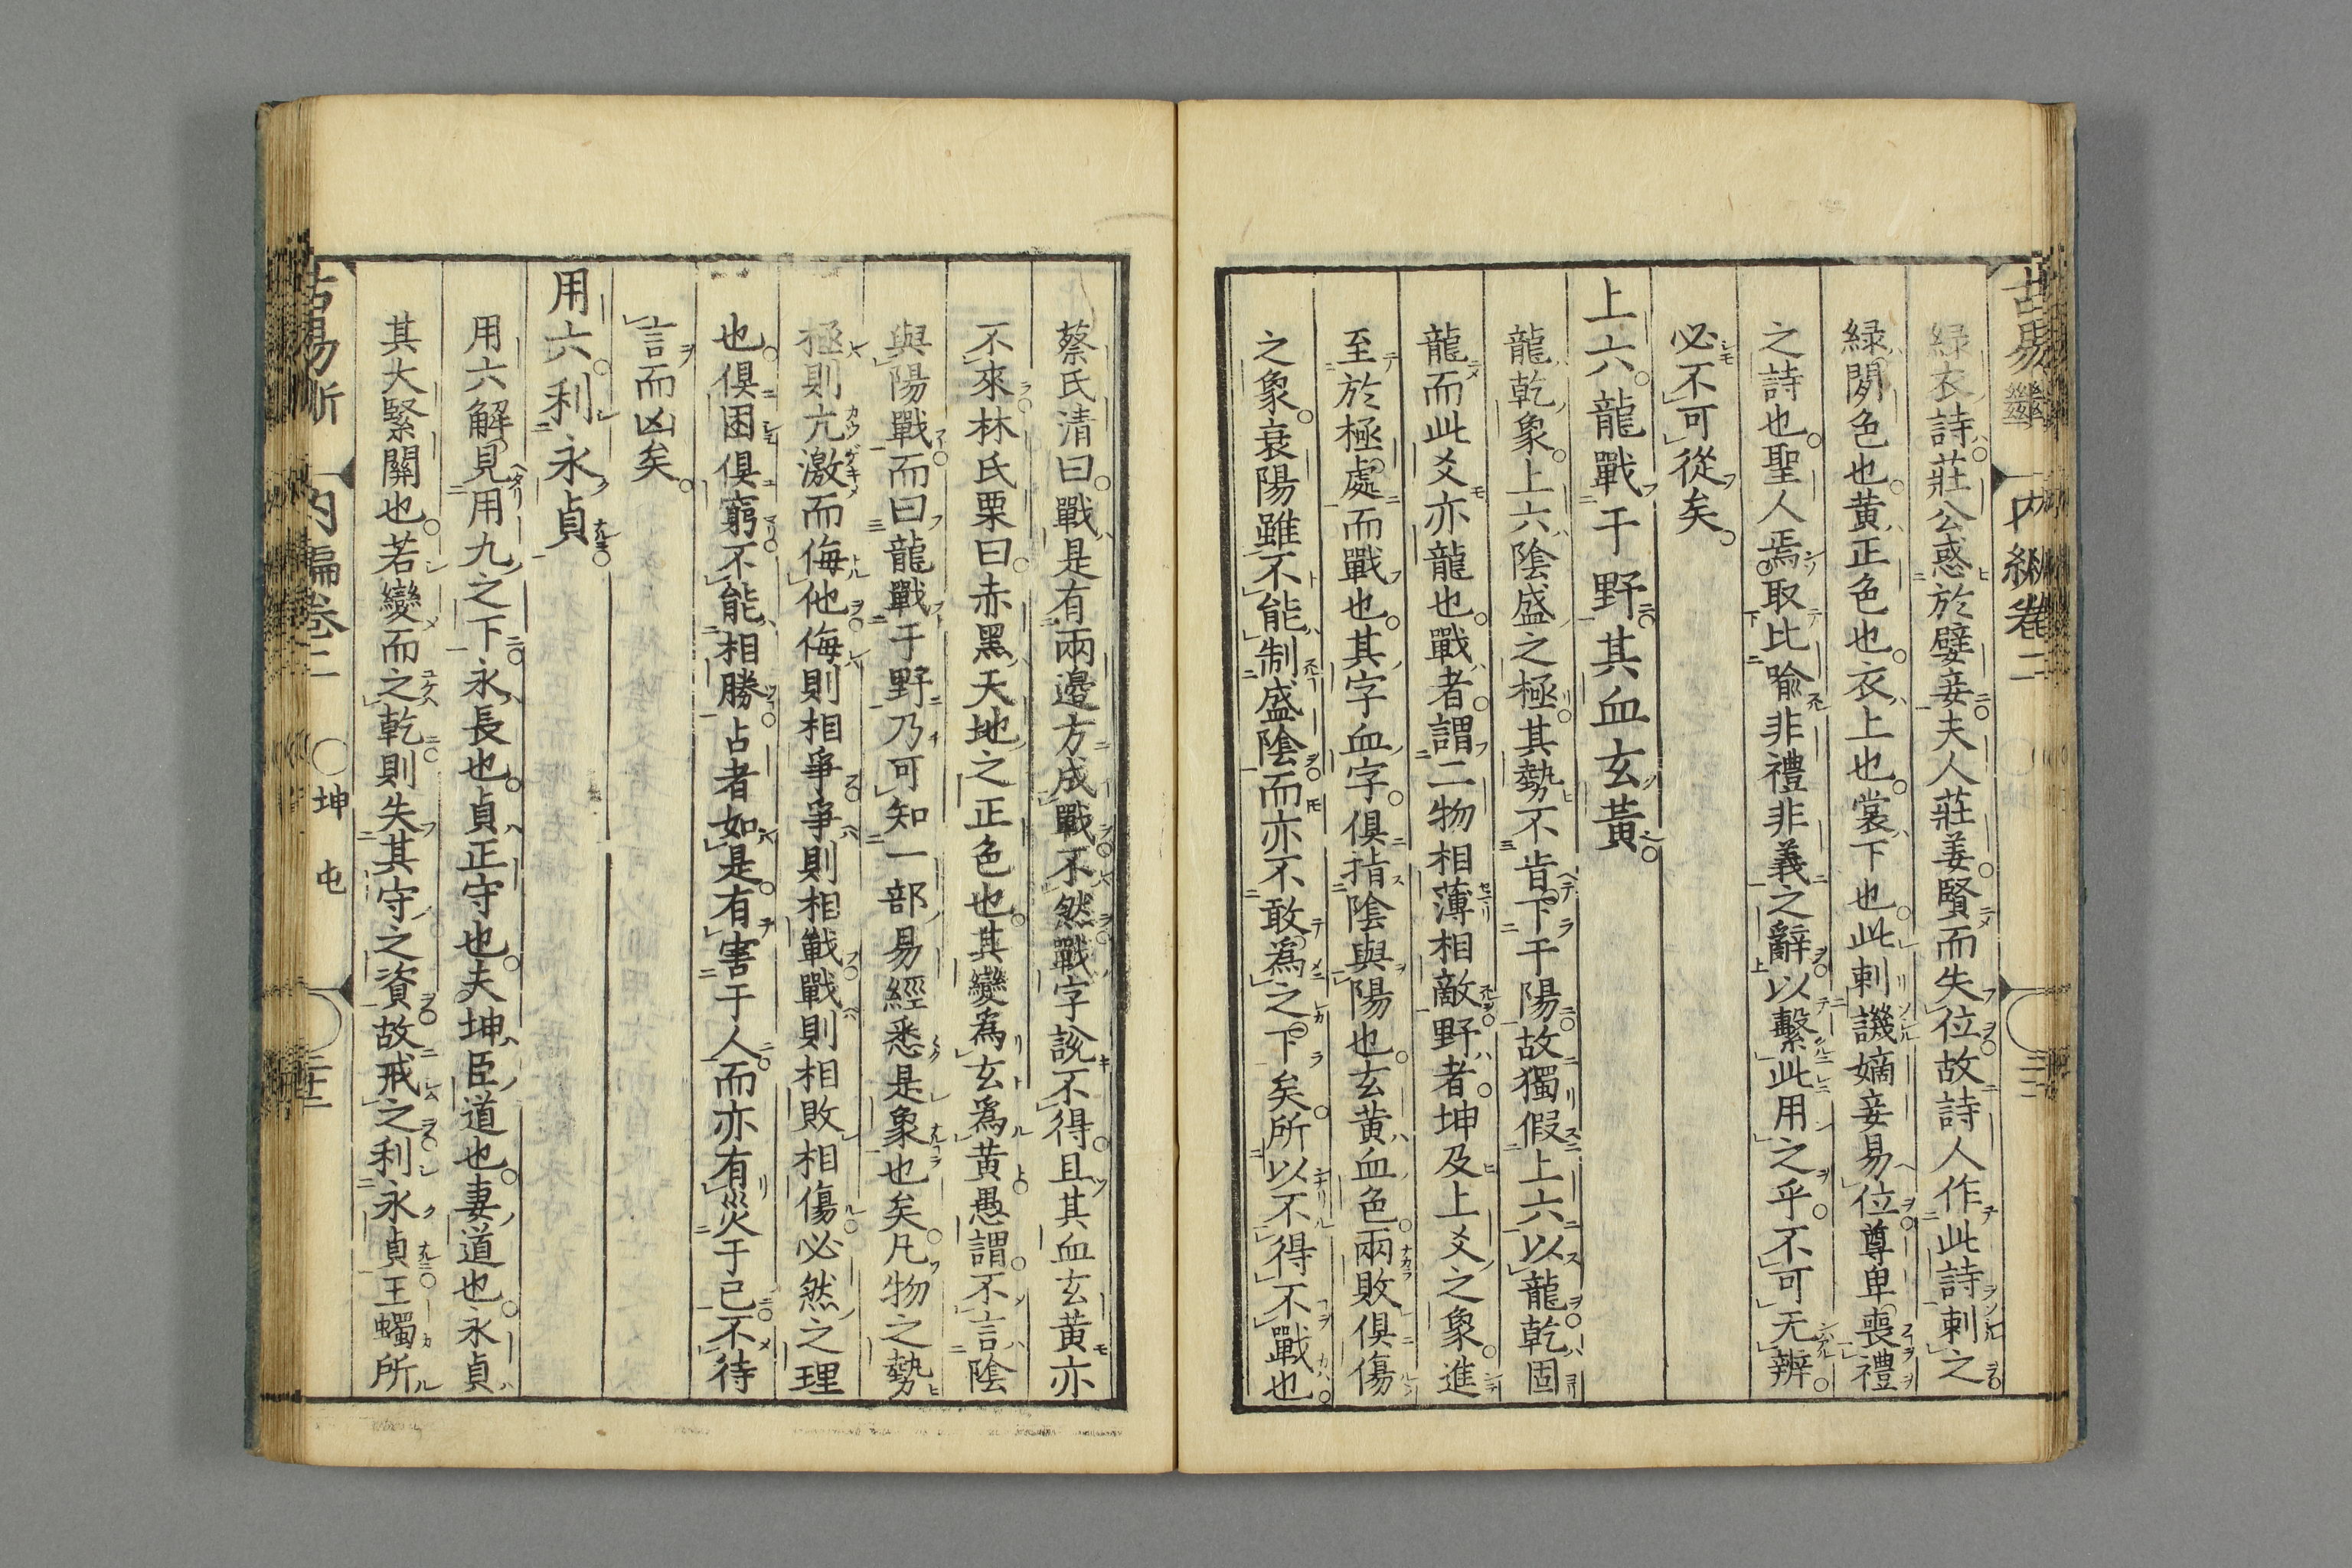 綠衣詩莊公惑於嬖妾夫人莊姜賢而失位故詩人作此詩刺之
綠間色也黄正色也衣上也裳下也此刺譏嫡妾易位尊卑喪禮
之詩也聖人焉取比喩非禮非義之辭以繫此用之乎不可无辨
必不可從矣
上六龍戰于野其血玄黃
龍乾象上六陰盛之極其勢不肯下于陽故獨假上六以龍乾固
龍而此爻亦龍也戰者謂二物相薄相敵野者坤及上爻之象進
至於極處而戰也其字血字俱指陰與陽也玄黄血色兩敗俱傷
之象衰陽雖不能制盛陰而亦不敢爲之下矣所以不得不戰也
蔡氏清曰戰是有兩邊方成戰不然戰字說不得且其血玄黄亦
不來林氏栗曰赤黑天地之正色也其變爲玄爲黄愚謂不言陰
與陽戰而曰龍戰于野乃可知一部易經悉是象也矣凡物之勢
極則亢激而侮他侮則相爭爭則相戰戰則相敗相傷必然之理
也俱困俱窮不能相勝占者如是有害于人而亦有災于己不待
言而凶矣
用六利永貞
用六解見用九之下永長也貞正守也夫坤臣道也妻道也永貞
其大緊關也若變而之乾則失其守之資故戒之利永貞王蠋所
古易斷 内編卷二 〇坤 屯